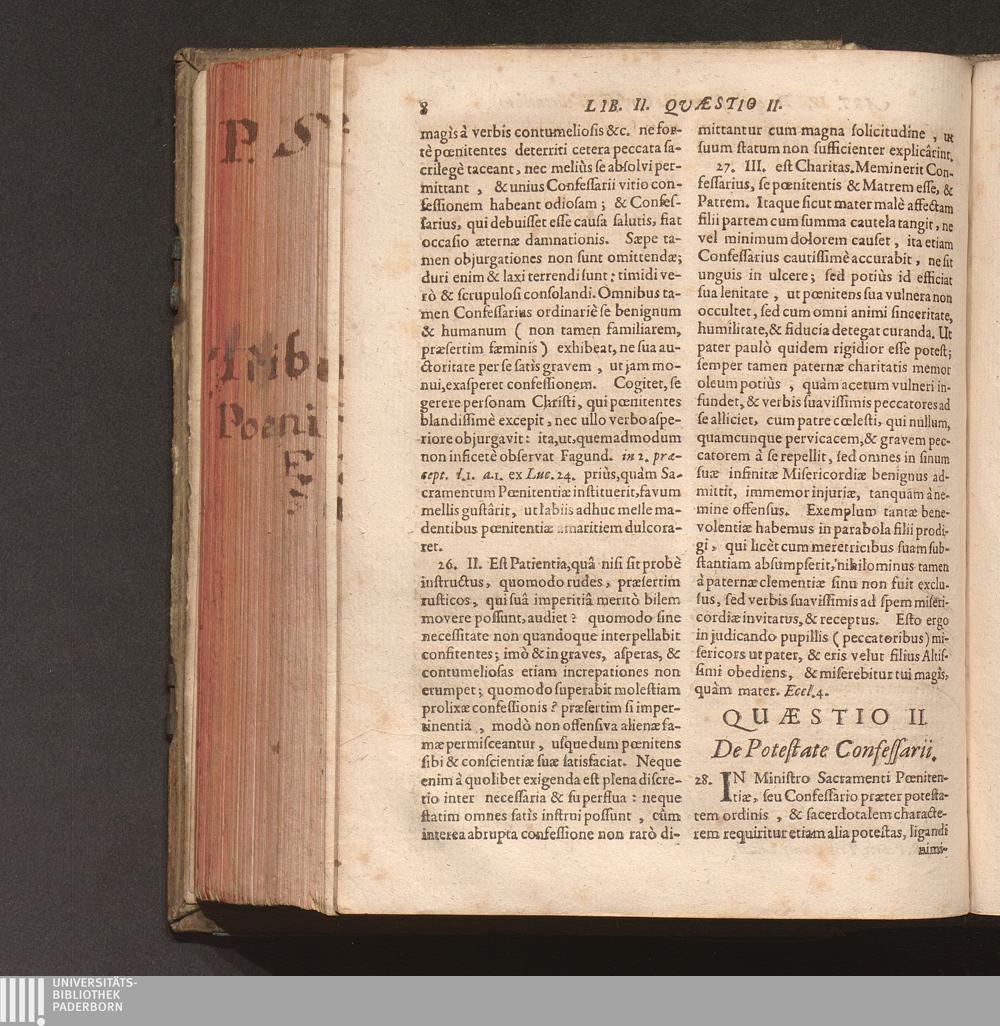 8 LIB. II. QVÆSTIO II.
magìs à verbis contumeliosis &c. ne for-
tè pœnitentes deterriti cetera peccata sa-
crilegè taceant, nec meliùs se absolvi per-
mittant , & unius Confessarii vitio con-
fessionem habeant odiosam ; & Confes-
sarius, qui debuisset esse causa salutis, fiat
occasio æternæ damnationis. Sæpe ta-
men objurgationes non sunt omittendæ;
duri enim & laxi terrendi sunt : timidi ve-
rò & scrupulosi consolandi. Omnibus ta-
men Confessarius ordinariè se benignum
& humanum ( non tamen familiarem,
præsertim fæminis ) exhibeat, ne sua au-
ctoritate per se satìs gravem , ut jam mo-
nui, exasperet confessionem. Cogitet, se
gerere personam Christi, qui pœnitentes
blandissimè excepit, nec ullo verbo aspe-
riore objurgavit: ita, ut, quemadmodum
non inficetè observat Fagund. in 2. præ-
cept. l.1. a.1. ex Luc. 24. priùs, quàm Sa-
cramentum Pœnitentiæ instituerit, favum
mellis gustârit, ut labiis adhuc melle ma-
dentibus pœnitentiæ amaritiem dulcora-
ret.
26. II. Est Patientia, quâ nisi sit probè
instructus, quomodo rudes, præsertim
rusticos, qui suâ imperitiâ meritò bilem
movere possunt, audiet ? quomodo sine
necessitate non quandoque interpellabit
confitentes; imò & in graves, asperas, &
contumeliosas etiam increpationes non
erumpet; quomodo superabit molestiam
prolixæ confessionis ? præsertim si imper-
tinentia , modò non offensiva alienæ fa-
mæ permisceantur, usque dum pœnitens
sibi & conscientiæ suæ satisfaciat. Neque
enim à quolibet exigenda est plena discre-
tio inter necessaria & superflua : neque
statim omnes satìs instrui possunt , cûm
interea abrupta confessione non rarò di-
mittantur cum magna solicitudine , ut
suum statum non sufficienter explicârint.
27. III. est Charitas. Meminerit Con-
fessarius, se pœnitentis & Matrem esse, &
Patrem. Itaque sicut mater malè affectam
filii partem cum summa cautela tangit, ne
vel minimum dolorem causet, ita etiam
Confessarius cautissimè accurabit, ne sit
unguis in ulcere; sed potiùs id efficiat
sua lenitate , ut pœnitens sua vulnera non
occultet, sed cum omni animi sinceritate,
humilitate, & fiducia detegat curanda. Ut
pater paulò quidem rigidior esse potest;
semper tamen paternæ charitatis memor
oleum potiùs , quàm acetum vulneri in-
fundet, & verbis suavissimis peccatores ad
se alliciet, cum patre cœlesti, qui nullum,
quamcunque pervicacem, & gravem pec-
catorem à se repellit, sed omnes in sinum
suæ infinitæ Misericordiæ benignus ad-
mittit, immemor injuriæ, tanquam à ne-
mine offensus. Exemplum tantæ bene-
volentiæ habemus in parabola filii prodi-
gi, qui licèt cum meretricibus suam sub-
stantiam absumpserit, nihilominus tamen
à paternæ clementiæ sinu non fuit exclu-
sus, sed verbis suavissimis ad spem miseri-
cordiæ invitatus, & receptus. Esto ergo
in judicando pupillis (peccatoribus) mi-
sericors ut pater, & eris velut filius Altis-
simi obediens, & miserebitur tui magìs,
quàm mater. Eccl. 4.
QUÆSTIO II.
De Potestate Confessarii.
28. IN Ministro Sacramenti Pœniten-
tiæ, seu Confessario præter potesta-
tem ordinis , & sacerdotalem characte-
rem requiritur etiam alia potestas, ligandi
nimi-
P. S
Poeni
UNIVERSITÄTS-
BIBLIOTHEK
PADERBORN